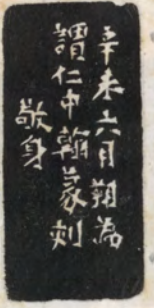 辛未六月朔為
讀仁中翰篆刻
敬身